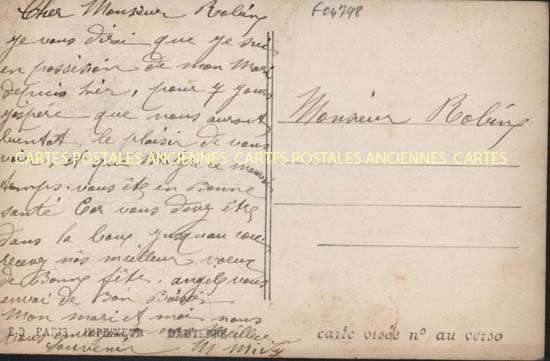 Cher Monsieur Robiny
F04798
je vous dirai que je suis
en possésion de mon Mari
depuis hier, pour 7 jours
j'espère que nous auront
bientot le plaisir de vous
voir, et que malgré ce mauvais
temps vous êtes en Bonne
santé Car vous devez être
dans la boux jusquau cou
recevez nos meilleur voeux
de Bonne fête. angele vous
envoi de Bon Baisers
Mon mari et moi nous
vous envoyons nos meilleur
souvenir M
Monsieur Robiny
CARTES POSTALES ANCIENNES CARTES POSTALES ANCIENNES CARTES
E.D. PARIS
carte visée n° au verso